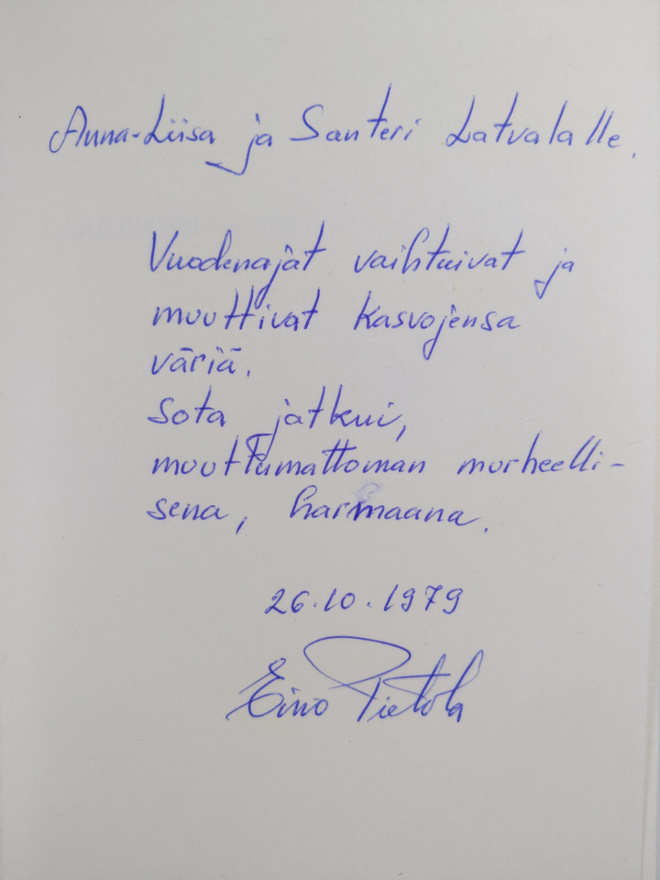 Anna-Liisa ja Santeri Latvalalle.
Vuodenajat vaihtuivat ja
muuttivat kasvojensa
väriä.
Sota jatkui,
muuttumattoman murheelli-
sena, harmaana.
26.10.1979
Eino Pietola